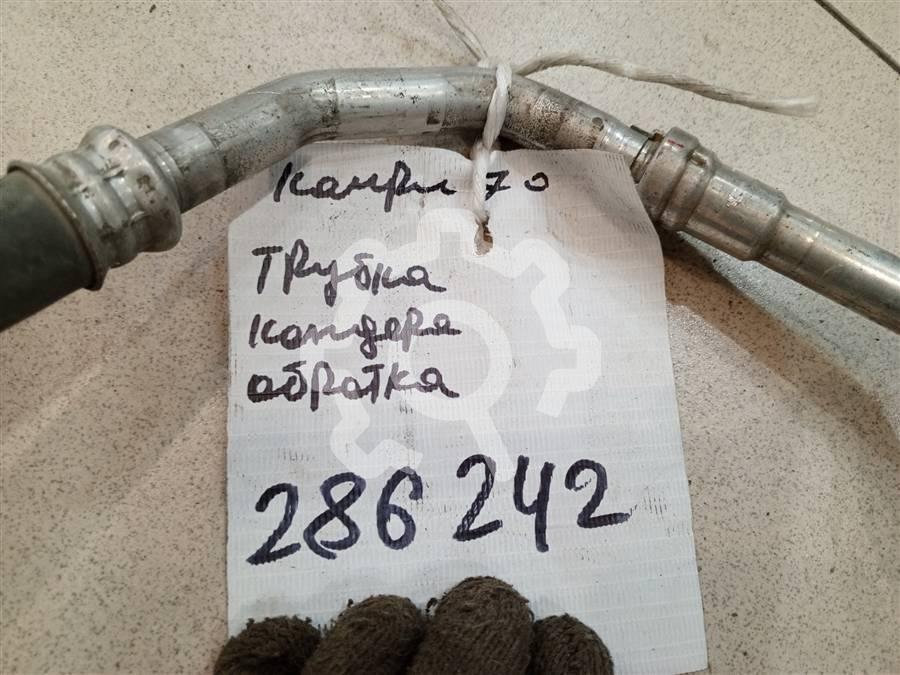 Камри 70
Трубка
кондера
обратка
286 242